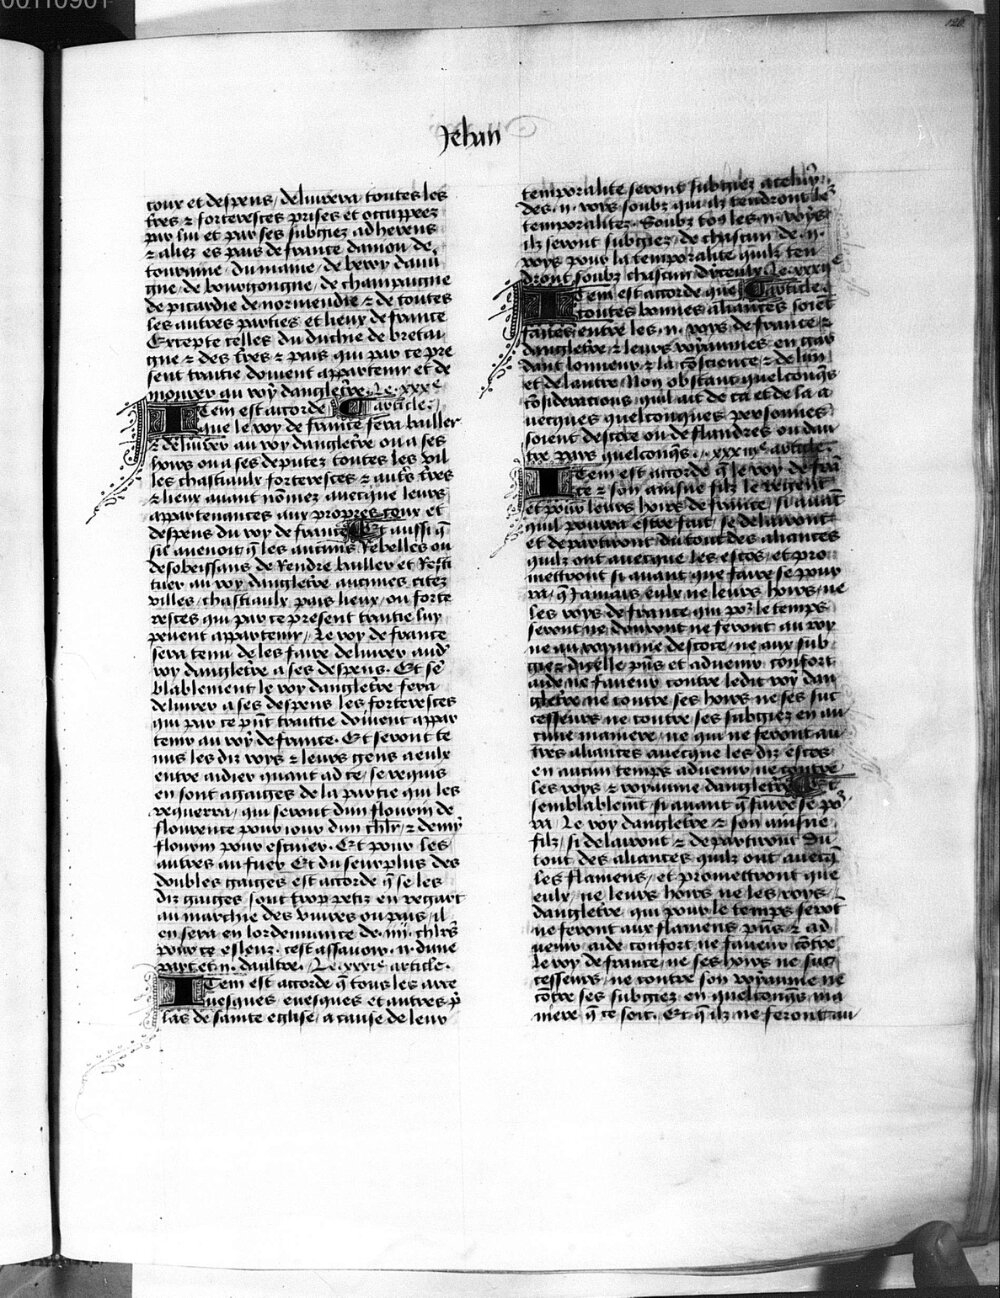 00110901
120
Jehan
coux et despens, deliurera toutes les
t̃res ⁊ forteresces prises et occuppees
par lui et par ses subgiez adherens
⁊ aliez es pais de france daniou de
touraine, du maine, de berry dauu̾
gne, de bourgongne, de champaigne
de picardie de normendie ⁊ de toutes
les autres parties et lieux de france
Excepte celles du duchie de bretai
gne ⁊ des t̃res ⁊ pais qui par ce pre
sent traitie doiuent appartenir et de
mourer au roy danglet̃re. Le .xxxe.
Item est accorde article.
que le roy de france fera bailler
⁊ deliurer au roy dangleterre ou a ses
hoirs ou a ses deputez toutes les vil
les chastiaulx forteresces ⁊ aut̃s t̃res
⁊ lieux auant nõmez auecque leurs
appartenances aux propres coux et
despens du roy de france Et aussi q̃
sil auenoit q̃ les aucuns Rebelles ou
desobeissans de Rendre bailler et Resti
tuer au roy dangleterre aucunes citez
villes, chastiaulx pais lieux, ou forte
resces qui par ce present traitie luy
peuent appartenir, Le roy de france
sera tenu de les faire deliurer audit
roy dangleterre a ses despens. Et se
blablement le roy dangleterre fera
deliurer a ses despens les forteresces
qui par ce pñt traittie doiuent appar
tenir au roy de france. Et seront te
nus les diz roys ⁊ leurs gens a eulx
entre aidier quant ad ce, se requis
en sont a gaiges de la partie qui les
requerra, qui seront dun flourin de
flourence pour iour dun chl̃r, ⁊ demy
flourin pour escuier. Et pour les
autres au fuer Et du seurplus des
doubles gaiges est accorde q̃ se les
diz gaiges sont trop petiz en regart
au marchie des viures ou pais, il
en sera en lordenance de .iiii. chl̃rs
pour ce esleuz. cest assauoir .ii. dune
part et .ii. daultre. Le .xxxie. article.
Item est accorde q̃ tous les arce
uesques euesques et autres p̃
las de sainte eglise, a cause de leur
temporalite seront subgiez a celuy
des .ii. roys soubz qui ilz tendront le2
temporalitez. Soubz to9 les .ii. roys
ilz seront subgiez, de chascun de .ii.
roys pour la temporalite quilz ten
dront soubz chascun diceulx. Le .xxxiie.
Item est accorde que article.
toutes bonnes aliances soiẽt
faites entre les .ii. roys de france ⁊
dangleterre ⁊ leurs royaumes en gar
dant lonneur ⁊ la cõscience ⁊ de lun
et de lautre. Non obstant quelconq̃s
cõsiderations quil ait de ca et de la a
uecques quelconques personnes
soient descoce ou de flandres ou dau
tre pays quelconq̃s. .xxxiiie. article.
Item est accorde q̃ le roy de frã
ce ⁊ son aisne filz le regent
et pour leurs hoirs de france, si auant
quil pourra estre fait, se delairont
et departiront du tout des aliances
quilz ont auecque les escos, et pro
mettront si auant que faire se pour
ra, q̃ Jamais eulx ne leurs hoirs, ne
les roys de france qui po2 le temps
seront ne donront ne feront au roy
ne au royaume descoce, ne aux sub
giez dicelle pñs et aduenir confort
aide ne faueur contre ledit roy dan
gleterre ne contre ses hoirs ne ses suc
cesseurs ne contre ses subgiez en au
cune maniere, ne qui ne feront au
tres aliances auecque les diz escos
en aucun temps aduenir ne contre
les roys ⁊ royaume dangleterre Et
semblablemẽt si auant q̃ faire se po2
ra. Le roy dangleterre ⁊ son aisne
filz, si delairont ⁊ departiront Du
tout des aliances quilz ont auecq̃
les flamens, et promettront que
eulx, ne leurs hoirs ne les roys
dangleterre qui pour le temps serõt
ne feront aux flamens pñs ⁊ ad
uenir aide confort ne faueur cõtre
le roy de france, ne ses hoirs ne suc
cesseurs, ne contre son royaume ne
cõtre ses subgiez en quelconq̃s ma
niere q̃ ce soit. Et q̃ ilz ne feront au